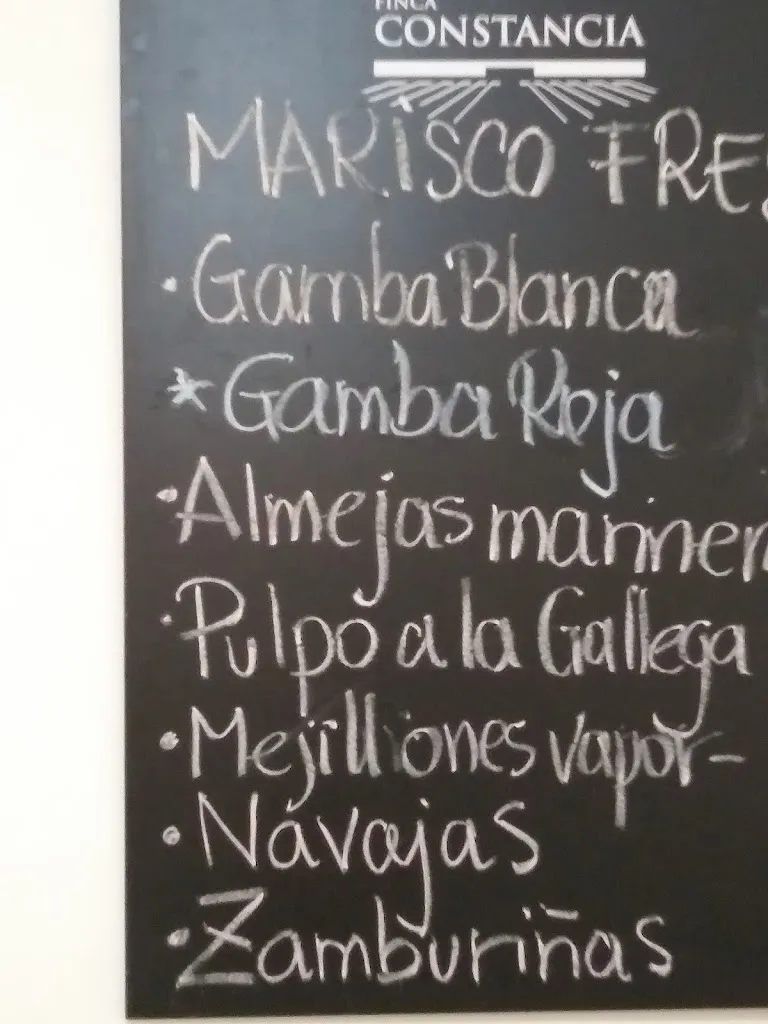 FINCA
CONSTANCIA
MARISCO FRES
· Gamba Blanca
* Gamba Roja
· Almejas mariner
· Pulpo a la Gallega
· Mejilliones vapor-
· Navajas
· Zamburiñas